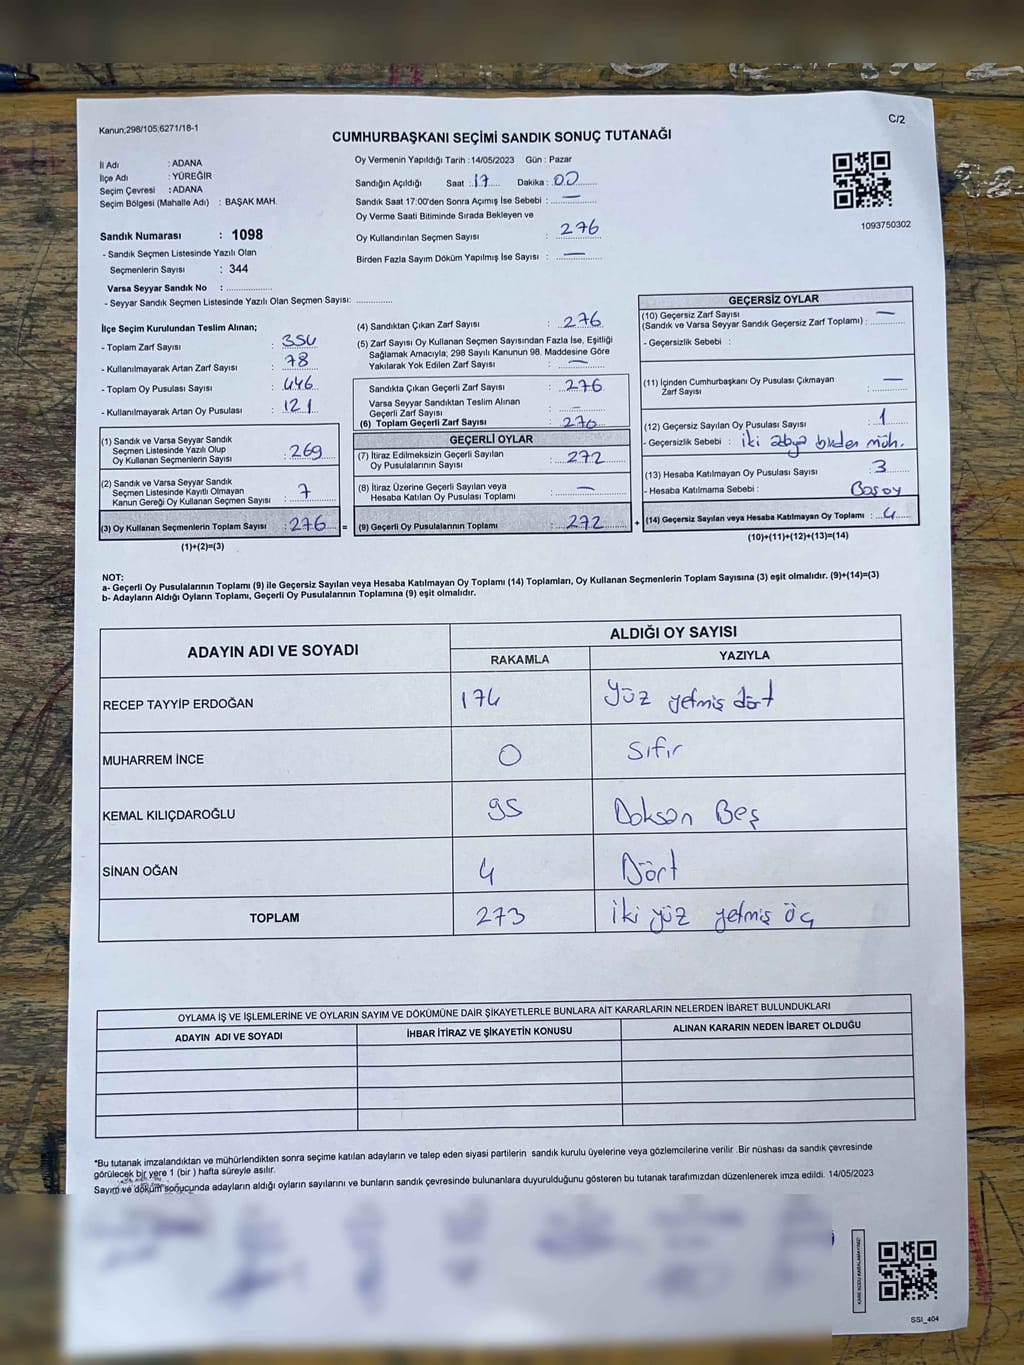 Kanun;298/105;6271/18-1
C/2
CUMHURBAŞKANI SEÇİMİ SANDIK SONUÇ TUTANAĞI
İl Adı : ADANA
İlçe Adı : YÜREĞİR
Seçim Çevresi : ADANA
Seçim Bölgesi (Mahalle Adı) : BAŞAK MAH.
Sandık Numarası : 1098
- Sandık Seçmen Listesinde Yazılı Olan
Seçmenlerin Sayısı : 344
Varsa Seyyar Sandık No :
- Seyyar Sandık Seçmen Listesinde Yazılı Olan Seçmen Sayısı:
Oy Vermenin Yapıldığı Tarih : 14/05/2023 Gün : Pazar
Sandığın Açıldığı Saat : 17 Dakika : 00
Sandık Saat 17:00'den Sonra Açımış İse Sebebi : —
Oy Verme Saati Bitiminde Sırada Bekleyen ve
Oy Kullandırılan Seçmen Sayısı : 276
Birden Fazla Sayım Döküm Yapılmış İse Sayısı : —
1093750302
İlçe Seçim Kurulundan Teslim Alınan;
- Toplam Zarf Sayısı : 354
- Kullanılmayarak Artan Zarf Sayısı : 78
- Toplam Oy Pusulası Sayısı : 446
- Kullanılmayarak Artan Oy Pusulası : 121
(1) Sandık ve Varsa Seyyar Sandık
Seçmen Listesinde Yazılı Olup
Oy Kullanan Seçmenlerin Sayısı : 269
(2) Sandık ve Varsa Seyyar Sandık
Seçmen Listesinde Kayıtlı Olmayan
Kanun Gereği Oy Kullanan Seçmen Sayısı : 7
(3) Oy Kullanan Seçmenlerin Toplam Sayısı : 276 =
(1)+(2)=(3)
(4) Sandıktan Çıkan Zarf Sayısı : 276
(5) Zarf Sayısı Oy Kullanan Seçmen Sayısından Fazla İse, Eşitliği
Sağlamak Amacıyla; 298 Sayılı Kanunun 98. Maddesine Göre
Yakılarak Yok Edilen Zarf Sayısı : —
Sandıkta Çıkan Geçerli Zarf Sayısı : 276
Varsa Seyyar Sandıktan Teslim Alınan
Geçerli Zarf Sayısı : —
(6) Toplam Geçerli Zarf Sayısı : 276
GEÇERLİ OYLAR
(7) İtiraz Edilmeksizin Geçerli Sayılan
Oy Pusulalarının Sayısı : 272
(8) İtiraz Üzerine Geçerli Sayılan veya
Hesaba Katılan Oy Pusulası Toplamı : —
(9) Geçerli Oy Pusulalarının Toplamı : 272 +
GEÇERSİZ OYLAR
(10) Geçersiz Zarf Sayısı
(Sandık ve Varsa Seyyar Sandık Geçersiz Zarf Toplamı) : —
- Geçersizlik Sebebi :
(11) İçinden Cumhurbaşkanı Oy Pusulası Çıkmayan
Zarf Sayısı : —
(12) Geçersiz Sayılan Oy Pusulası Sayısı : 1
- Geçersizlik Sebebi : iki birden müh.
(13) Hesaba Katılmayan Oy Pusulası Sayısı : 3
- Hesaba Katılmama Sebebi : Boş oy
(14) Geçersiz Sayılan veya Hesaba Katılmayan Oy Toplamı : 4
(10)+(11)+(12)+(13)=(14)
NOT:
a- Geçerli Oy Pusulalarının Toplamı (9) ile Geçersiz Sayılan veya Hesaba Katılmayan Oy Toplamı (14) Toplamları, Oy Kullanan Seçmenlerin Toplam Sayısına (3) eşit olmalıdır. (9)+(14)=(3)
b- Adayların Aldığı Oyların Toplamı, Geçerli Oy Pusulalarının Toplamına (9) eşit olmalıdır.
ADAYIN ADI VE SOYADI
ALDIĞI OY SAYISI
RAKAMLA YAZIYLA
RECEP TAYYİP ERDOĞAN 174 Yüz yetmiş dört
MUHARREM İNCE 0 Sıfır
KEMAL KILIÇDAROĞLU 95 Doksan Beş
SİNAN OĞAN 4 Dört
TOPLAM 273 iki yüz yetmiş üç
OYLAMA İŞ VE İŞLEMLERİNE VE OYLARIN SAYIM VE DÖKÜMÜNE DAİR ŞİKAYETLERLE BUNLARA AİT KARARLARIN NELERDEN İBARET BULUNDUKLARI
ADAYIN ADI VE SOYADI İHBAR İTİRAZ VE ŞİKAYETİN KONUSU ALINAN KARARIN NEDEN İBARET OLDUĞU
*Bu tutanak imzalandıktan ve mühürlendikten sonra seçime katılan adayların ve talep eden siyasi partilerin sandık kurulu üyelerine veya gözlemcilerine verilir .Bir nüshası da sandık çevresinde
görülecek bir yere 1 (bir ) hafta süreyle asılır.
Sayım ve döküm sonucunda adayların aldığı oyların sayılarını ve bunların sandık çevresinde bulunanlara duyurulduğunu gösteren bu tutanak tarafımızdan düzenlenerek imza edildi. 14/05/2023
KARE KODU KARALAMAYINIZ!
SSI_404